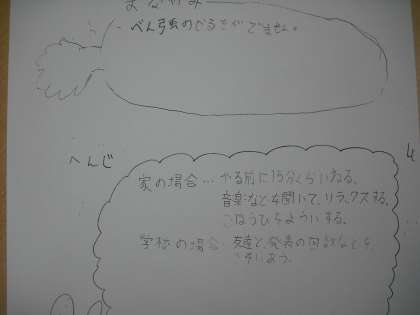 まなやみ
・べん強のやるきがでません。
へんじ
家の場合…やる前に15分くらいねる。
音楽などを聞いて、リラックスする。
ごほうびをようい する。
学校の場合 友達と、発表の